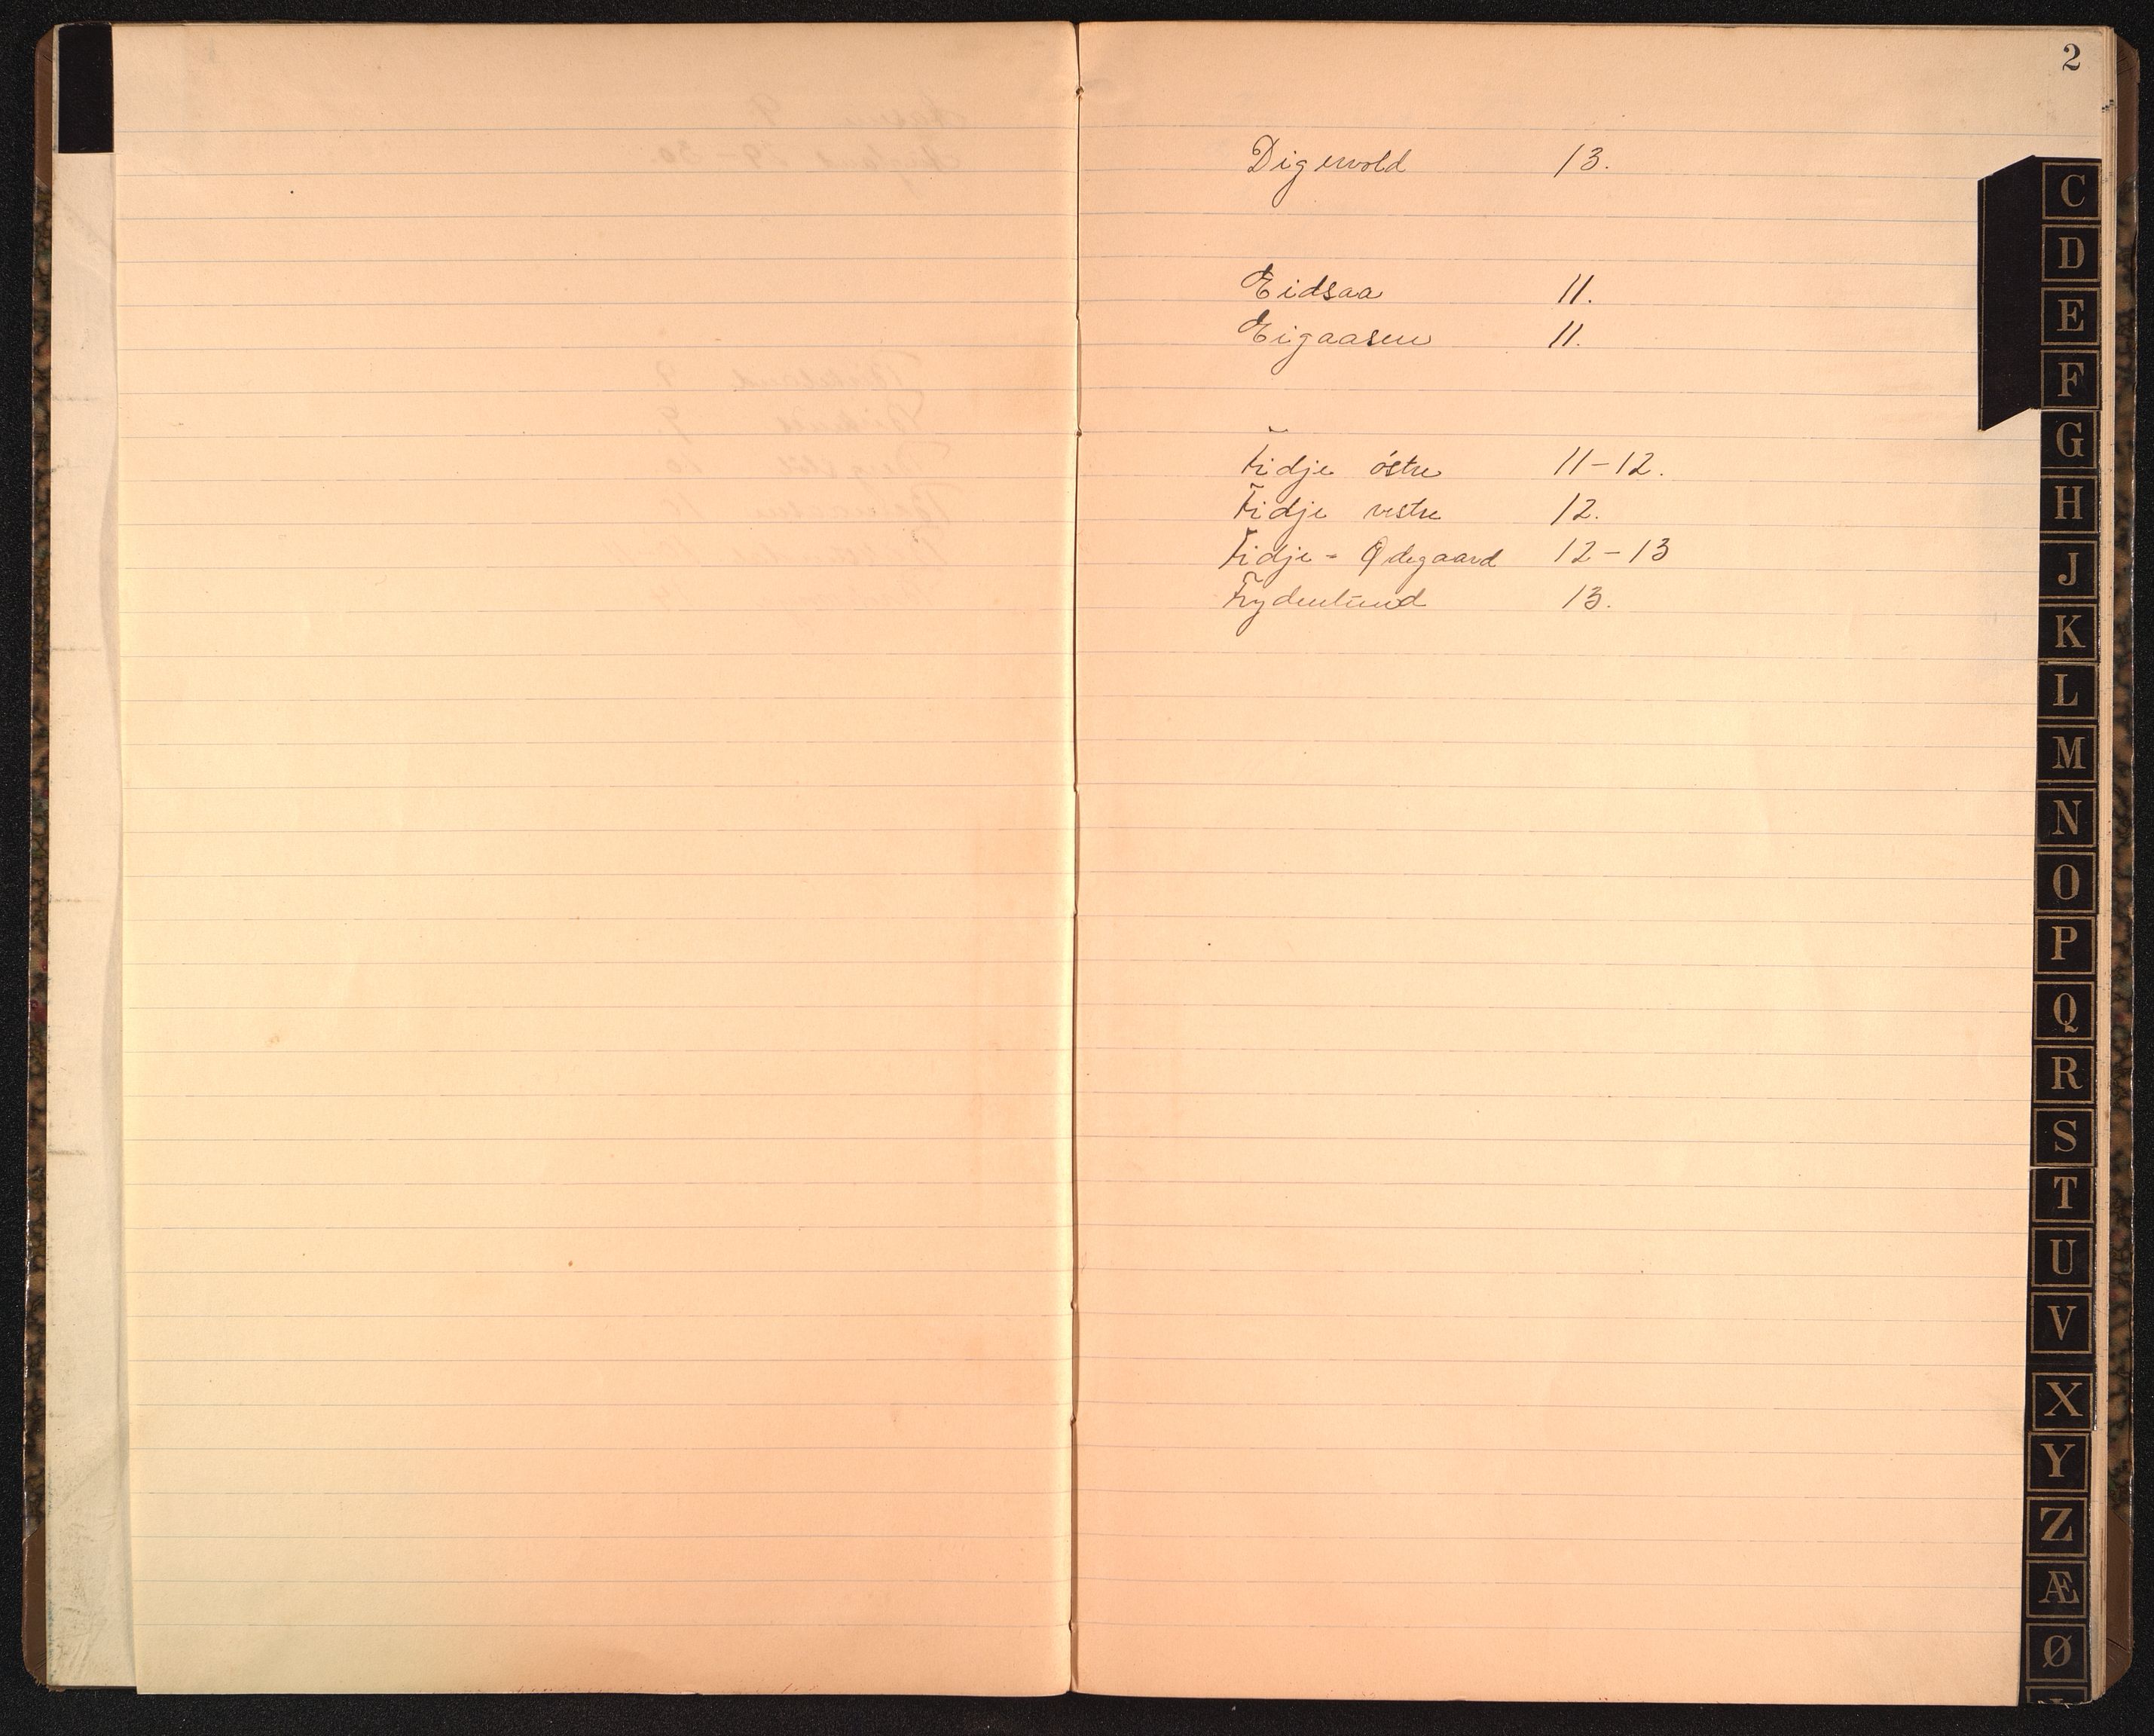 2
Digervold 13.
Eidsaa 11.
Eigaasen 11.
Fidje östre 11-12.
Fidje vestre 12.
Fidje - Ødegaard 12-13
Frydenlund 13.
C
D
E
F
G
H
J
K
L
M
N
O
P
Q
R
S
T
U
V
X
Y
Z
Æ
Ø